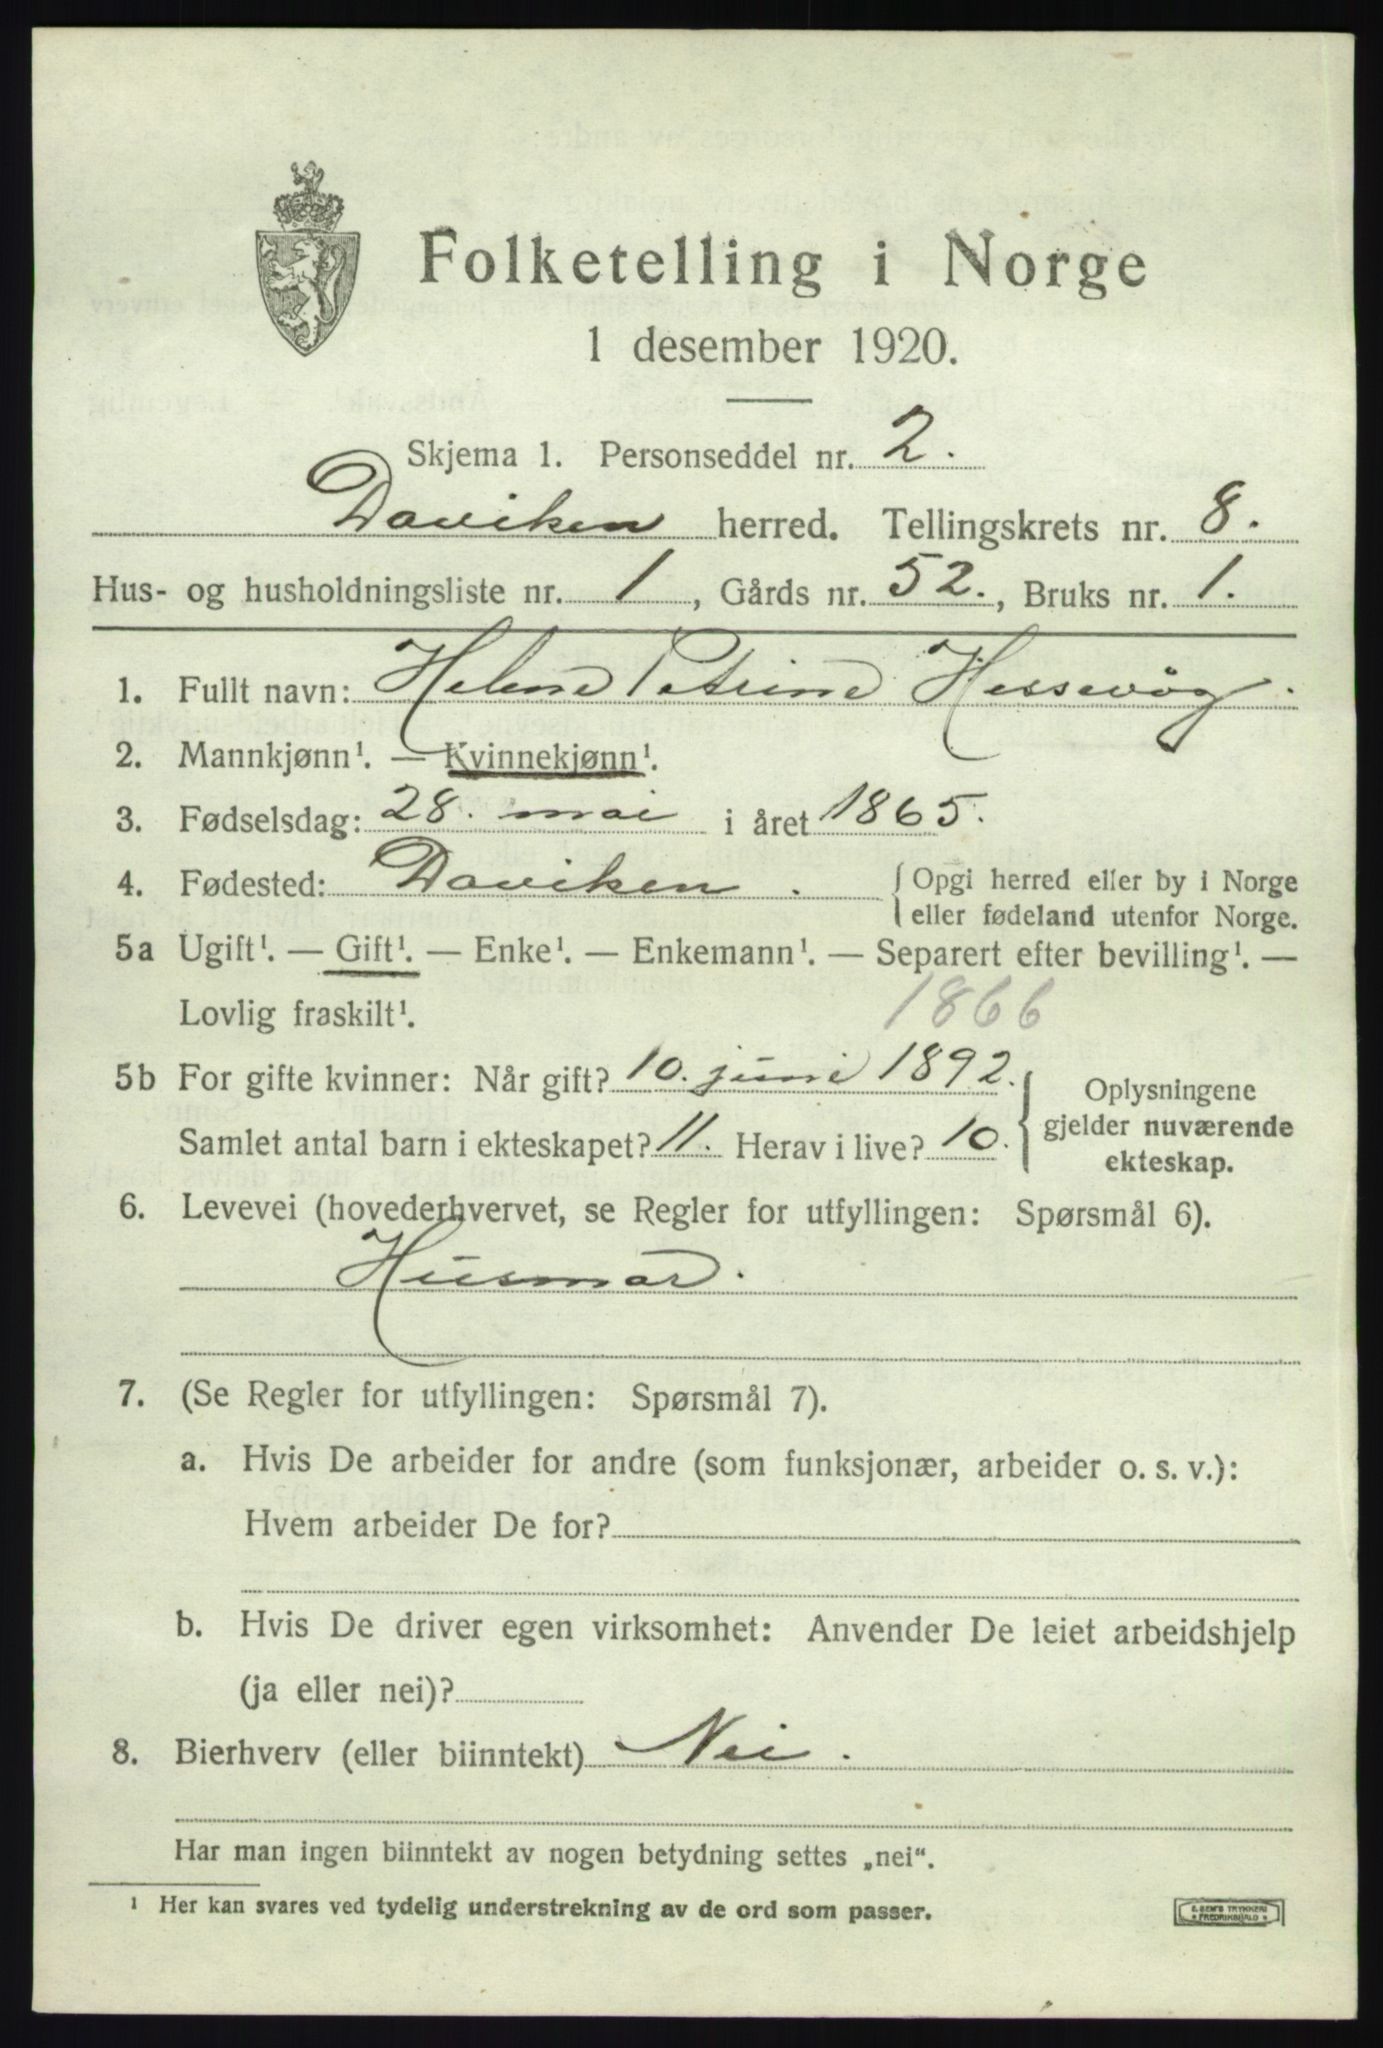 Folketelling i Norge
1 desember 1920.
Skjema 1. Personseddel nr. 2.
Daviken herred. Tellingskrets nr. 8.
Hus- og husholdningsliste nr. 1, Gårds nr. 52., Bruks nr. 1.
1. Fullt navn: Helene Petrine Hessevåg.
2. Mannkjønn¹. — Kvinnekjønn¹.
3. Fødselsdag: 28. mai i året 1865.
4. Fødested: Daviken. { Opgi herred eller by i Norge
eller fødeland utenfor Norge.
5a Ugift¹. — Gift¹. — Enke¹. — Enkemann¹. — Separert efter bevilling¹. —
Lovlig fraskilt¹. 1866
5b For gifte kvinner: Når gift? 10. juni 1892.
Samlet antal barn i ekteskapet? 11. Herav i live? 10.
Oplysningene
gjelder nuværende
ekteskap.
6. Levevei (hovederhvervet, se Regler for utfyllingen: Spørsmål 6).
Husmor.
7. (Se Regler for utfyllingen: Spørsmål 7).
a. Hvis De arbeider for andre (som funksjonær, arbeider o. s. v.):
Hvem arbeider De for?
b. Hvis De driver egen virksomhet: Anvender De leiet arbeidshjelp
(ja eller nei)?
8. Bierhverv (eller biinntekt) Nei.
Har man ingen biinntekt av nogen betydning settes „nei“.
¹ Her kan svares ved tydelig understrekning av de ord som passer.
TRYKKERI
FREDRIKSHALD